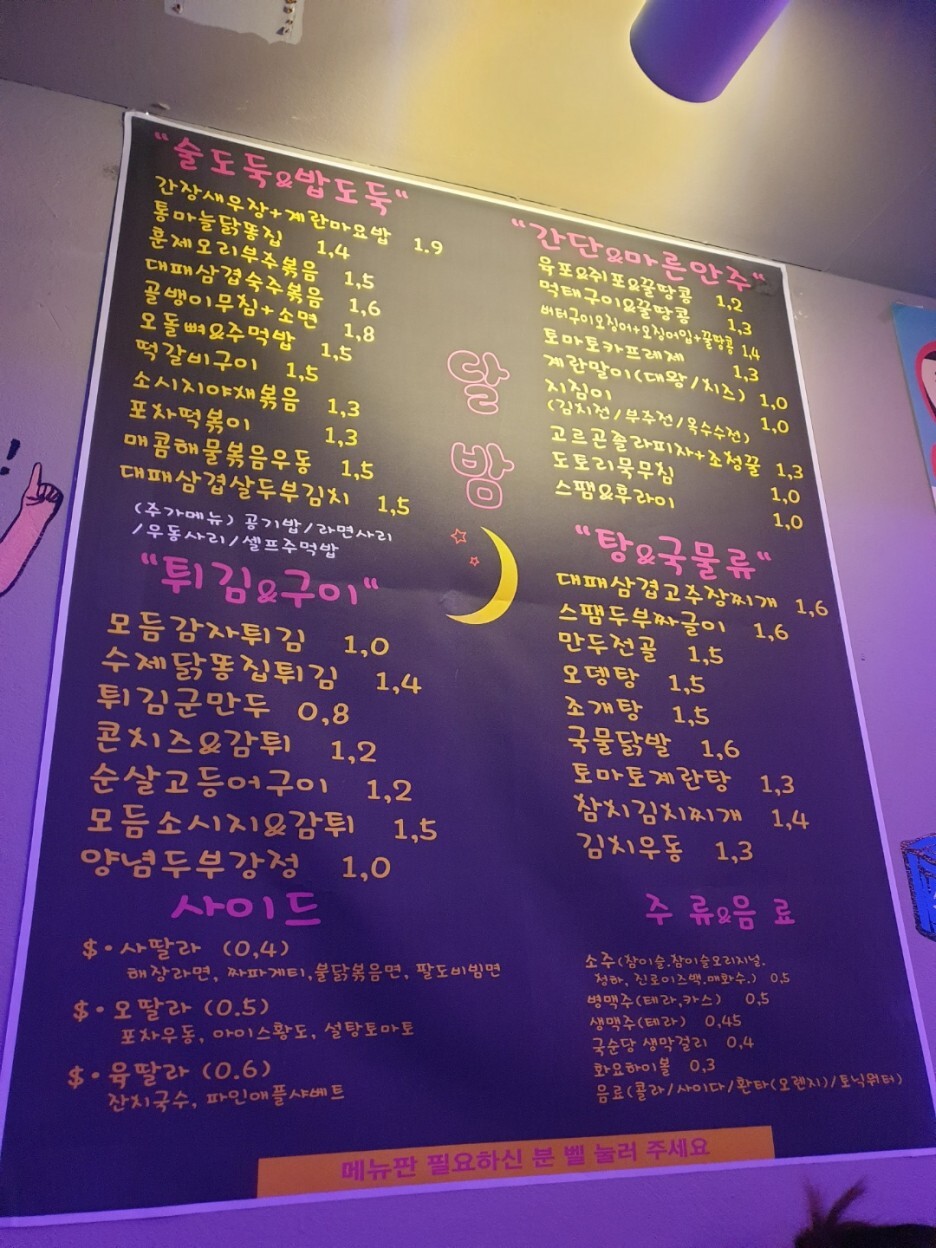 "술도둑&밥도둑"
간장새우장+계란마요밥 1.9
통마늘닭똥집 1,4
훈제오리부추볶음 1,5
대패삼겹숙주볶음 1,6
골뱅이무침+소면 1,8
오돌뼈&주먹밥 1,5
떡갈비구이 1,5
소시지야채볶음 1,3
포차떡볶이 1,3
매콤해물볶음우동 1,5
대패삼겹살두부김치 1,5
(추가메뉴) 공기밥/라면사리
/우동사리/셀프주먹밥
"튀김&구이"
모듬감자튀김 1,0
수제닭똥집튀김 1,4
튀김군만두 0,8
콘치즈&감튀 1,2
순살고등어구이 1,2
모듬소시지&감튀 1,5
양념두부강정 1,0
사이드
$·사딸라 (0,4)
해장라면, 짜파게티,불닭볶음면, 팔도비빔면
$·오딸라 (0.5)
포차우동, 아이스황도, 설탕토마토
$·육딸라 (0.6)
잔치국수, 파인애플샤베트
달
밤
"간단&마른안주"
육포&쥐포&꿀땅콩 1,2
먹태구이&꿀땅콩 1,3
버터구이오징어+오징어입+꿀땅콩 1,4
토마토카프레제 1,3
계란말이(대왕/치즈) 1,0
지짐이 1,0
(김치전/부추전/옥수수전)
고르곤졸라피자+조청꿀 1,3
도토리묵무침 1,0
스팸&후라이 1,0
"탕&국물류"
대패삼겹고추장찌개 1,6
스팸두부짜글이 1,6
만두전골 1,5
오뎅탕 1,5
조개탕 1,5
국물닭발 1,6
토마토계란탕 1,3
참치김치찌개 1,4
김치우동 1,3
주류&음료
소주(참이슬,참이슬오리지널,
청하, 진로이즈백,매화수,) 0,5
병맥주(테라,카스) 0,5
생맥주(테라) 0,45
국순당 생막걸리 0,4
화요하이볼 0,3
음료(콜라/사이다/환타(오렌지)/토닉워터)
메뉴판 필요하신 분 벨 눌러 주세요
!